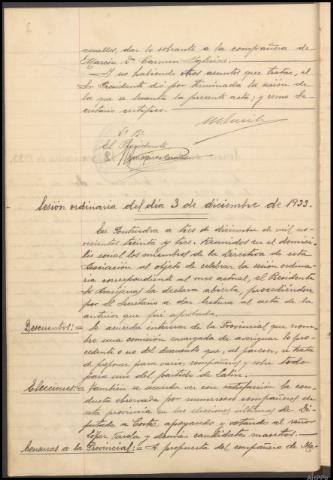 acuelles, dar lo sobrante a la compañera de
Marcón Dª Carmen Iglesias.
- Y no habiendo otros asuntos que tratar, el
Sr. Presidente dió por terminada la sesión de
la que se levanta la presente acta; y como Se-
cretario certifico.
Vº Bº
El Presidente
Sesión ordinaria del día 3 de diciembre de 1933.
En Pontevedra a tres de diciembre de mil no-
vecientos treinta y tres. Reunidos en el domici-
lio social los miembros de la Directiva de esta
Asociación al objeto de celebrar la sesión ordina-
ria correspondiente al mes actual, el Presidente
la declara abierta, procediendo
por el Secretario a dar lectura al acta de la
anterior que fué aprobada.
Descuentos: = Se acuerda interesar de la Provincial que nom-
bre una comisión encargada de averiguar lo pro-
cedente o no del descuento que, al parecer, se trata
de hacer para varios compañeros y sobre todo
para uno del partido de Lalín.
Elecciones: = También se acuerda ver con satisfacción la con-
ducta observada por numerosos compañeros de
esta provincia en las elecciones últimas de Di-
putados a Cortes, apoyando y votando al señor
López Varela y demás candidatos maestros.
Censuras a la Provincial: = A propuesta del compañero de Mo-